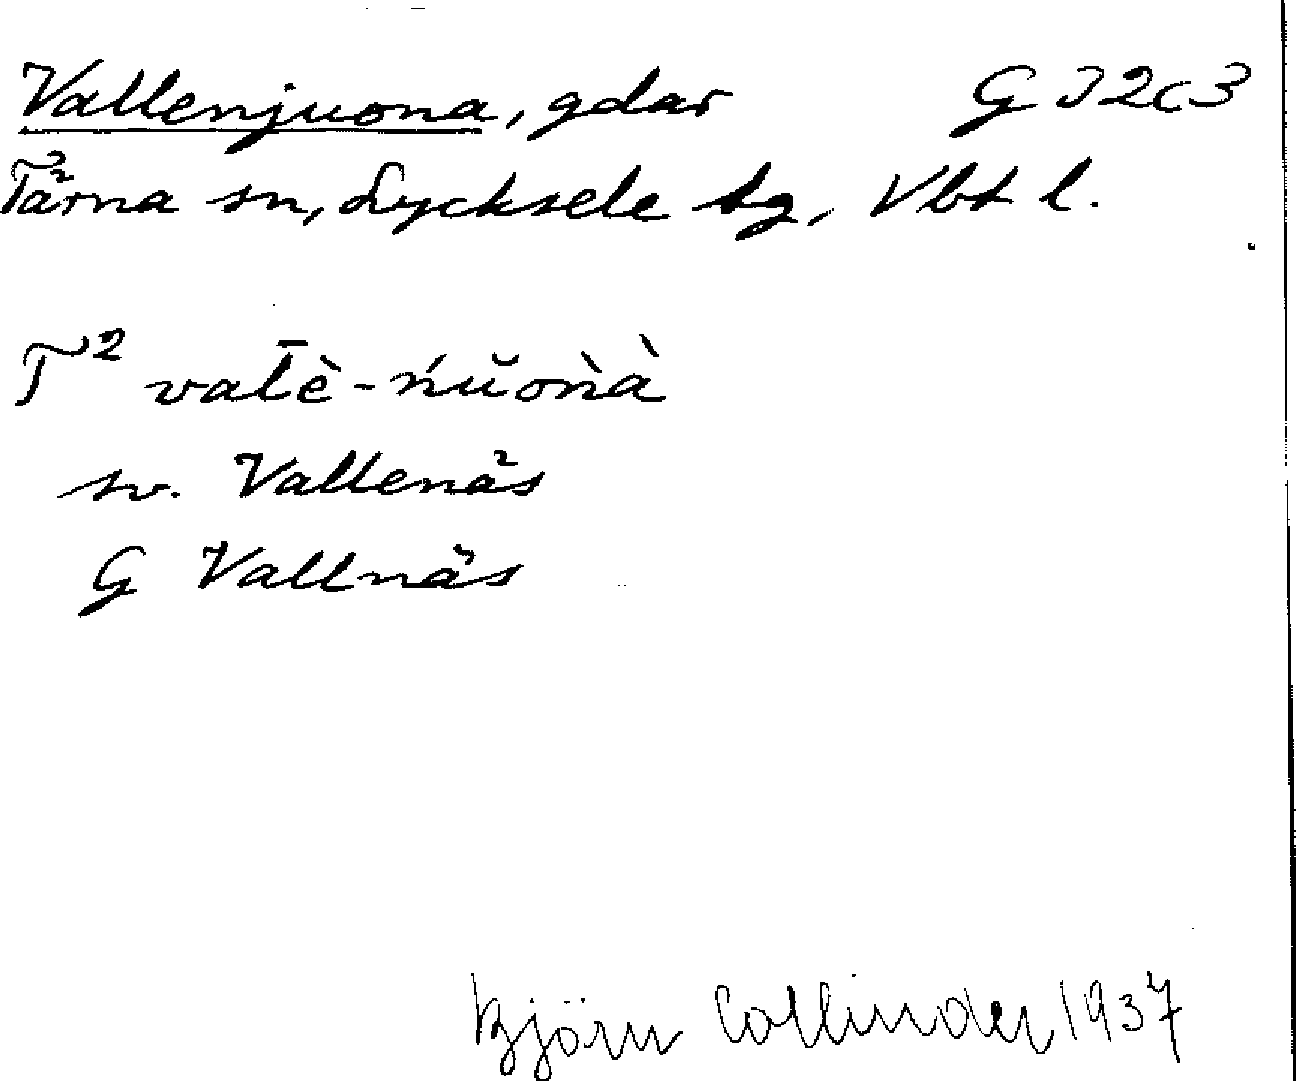 Vallenjuona, gdar G J2c3
Tärna sn, Lycksele lg, Vbt l.
T² val̄è-ńŭoǹà
sv. Vallenäs
G Vallnäs
Björn Collinder 1937